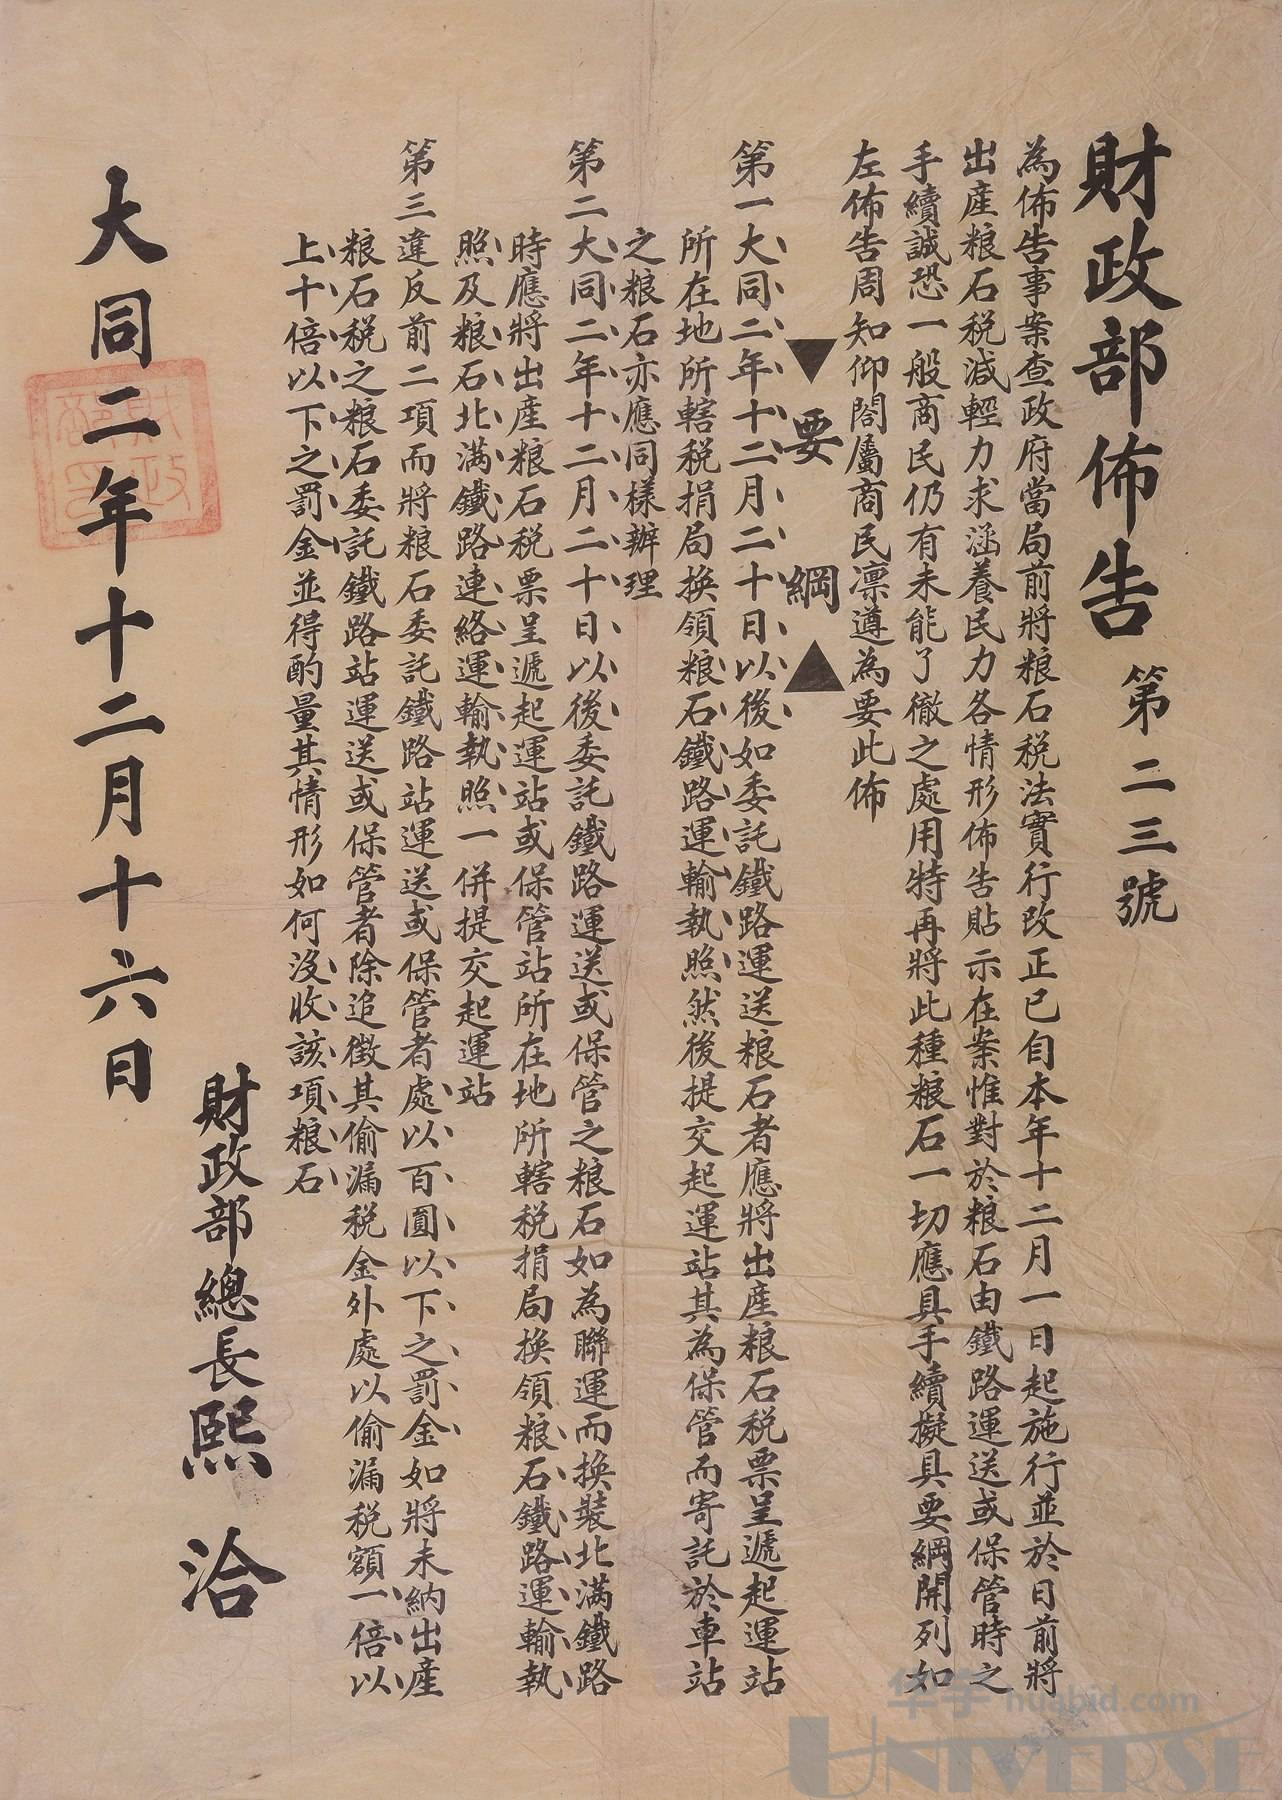 財政部佈告 第二三號
為佈告事案查政府當局前將粮石税法實行改正已自本年十二月一日起施行並於日前將
出産粮石税減輕力求涵養民力各情形佈告貼示在案惟對於粮石由鐵路運送或保管時之
手續誠恐一般商民仍有未能了徹之處用特再將此種粮石一切應具手續擬具要綱開列如
左佈告周知仰閤屬商民凛遵為要此佈
▼要綱▲
第一大同二年十二月二十日以後如委託鐵路運送粮石者應將出産粮石税票呈遞起運站
所在地所轄税捐局換領粮石鐵路運輸執照然後提交起運站其為保管而寄託於車站
之粮石亦應同樣辦理
第二大同二年十二月二十日以後委託鐵路運送或保管之粮石如為聯運而換裝北満鐵路
時應將出産粮石税票呈遞起運站或保管站所在地所轄税捐局換領粮石鐵路運輸執
照及粮石北満鐵路連絡運輸執照一併提交起運站
第三違反前二項而將粮石委託鐵路站運送或保管者處以百圓以下之罰金如將未納出産
粮石税之粮石委託鐵路站運送或保管者除追徴其偷漏税金外處以偷漏税額一倍以
上十倍以下之罰金並得酌量其情形如何没收該項粮石
財政部總長熙洽
大同二年十二月十六日
財政部印
华宇 huabid.com
UNIVERSE